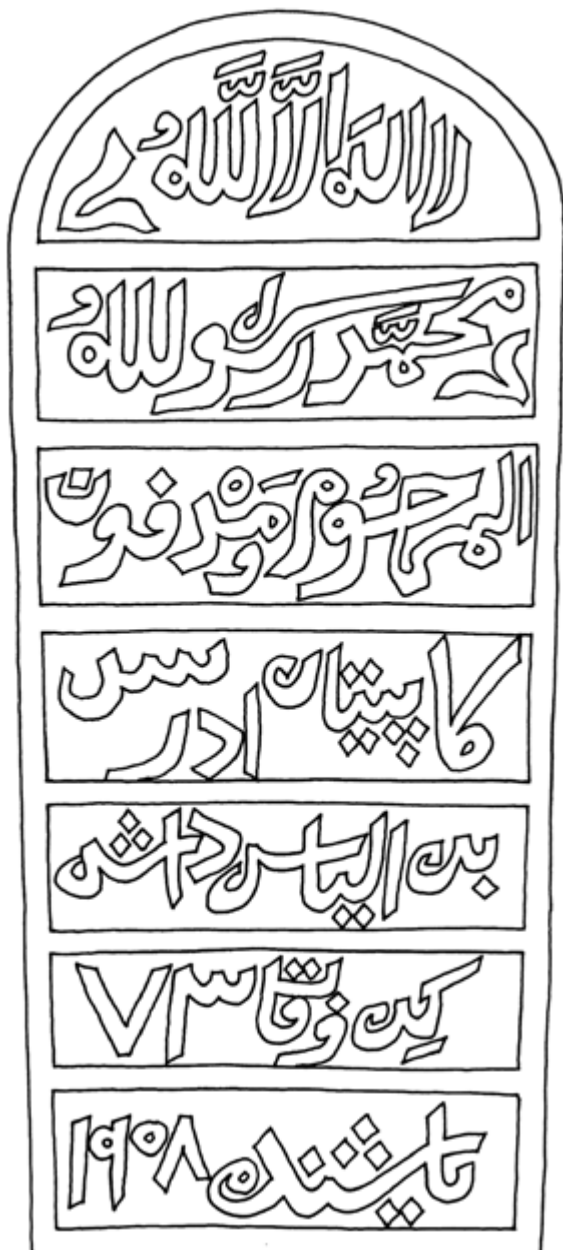 لا اله الّا اللّٰهُ
محمّد رسول اللهُ
المرحُوم وَ مدْفون
كاپیتان ادرس
بن الیاس
كین وفات ٧٣
یاشنده ١٩٠٨